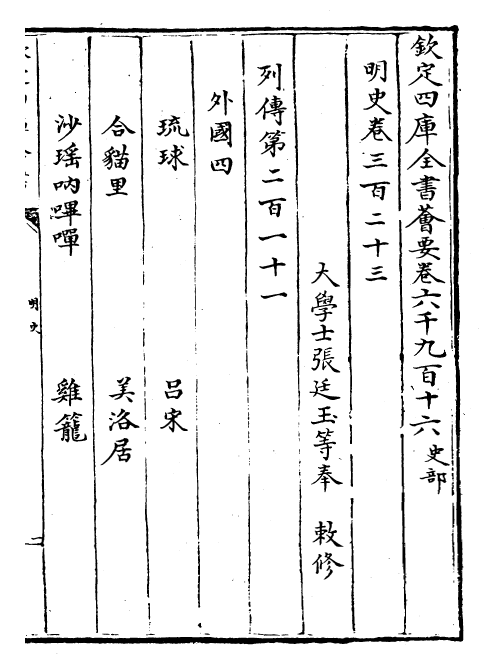 欽定四庫全書薈要卷六千九百十六 史部
明史卷三百二十三
大學士張廷玉等奉 敕修
列傳第二百一十一
外國四
琉球 呂宋
合貓里 美洛居
沙瑶吶嗶嘽 雞籠
明史